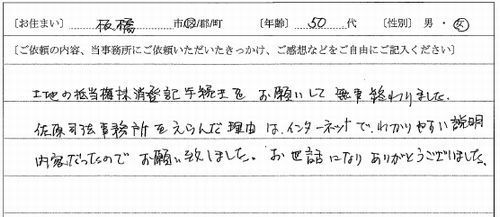 〔お住まい〕 板橋 市・区/郡/町 〔年齢〕 50 代 〔性別〕 男・女
〔ご依頼の内容、当事務所にご依頼いただいたきっかけ、ご感想などをご自由にご記入ください〕
土地の抵当権抹消登記手続きを お願いして 無事終わりました。
佐原司法事務所をえらんだ理由は、インターネットで、わかりやすい説明
内容だったので お願い致しました。お世話になり ありがとうございました。